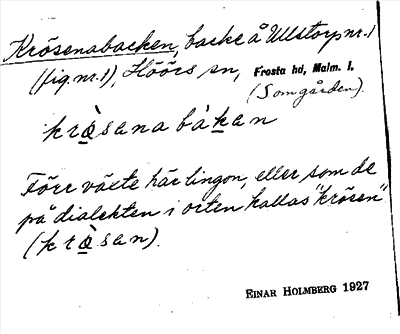 Krösenabacken, backe å Ullstorp nr. 1
(fig. nr. 1), Höörs sn, Frosta hd, Malm. l.
(Somgården).
krǜsana bàkan
Förr växte här lingon, eller som de
på dialekten i orten kallas "krösen"
(krǜsan).
EINAR HOLMBERG 1927